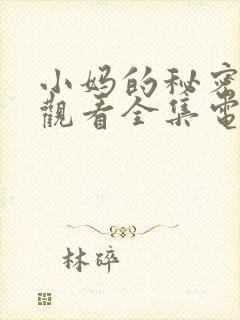 小妈的秘密
觀看全集電
林碎